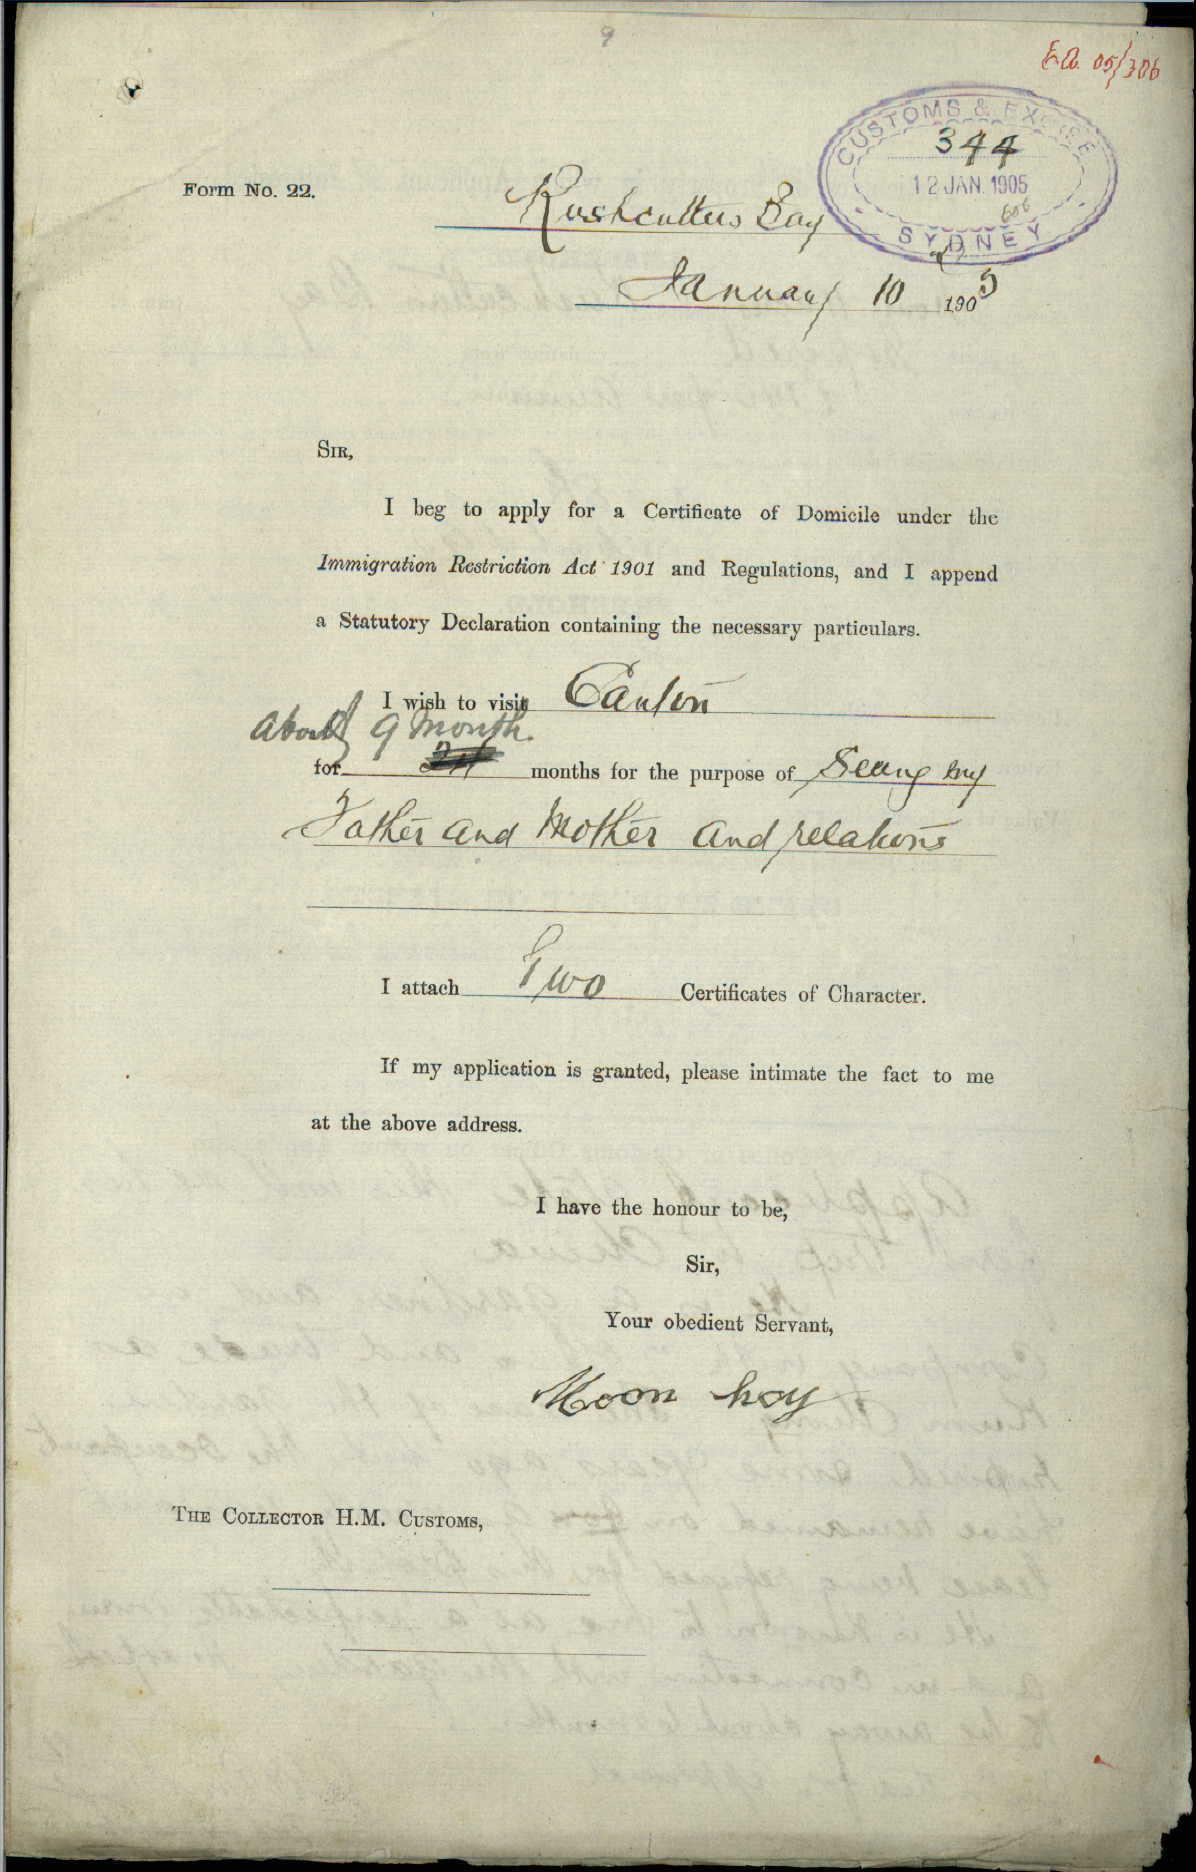 9
05/306
CUSTOMS & EXCISE
344
12 JAN. 1905
SYDNEY
Form No. 22.
Rushcutters Bay
January 10 1905
SIR,
I beg to apply for a Certificate of Domicile under the
Immigration Restriction Act 1901 and Regulations, and I append
a Statutory Declaration containing the necessary particulars.
I wish to visit Canton
About 9 month.
for 24 months for the purpose of Seeing my
Father and Mother and relations
I attach Two Certificates of Character.
If my application is granted, please intimate the fact to me
at the above address.
I have the honour to be,
Sir,
Your obedient Servant,
Moon hoy
THE COLLECTOR H.M. CUSTOMS,